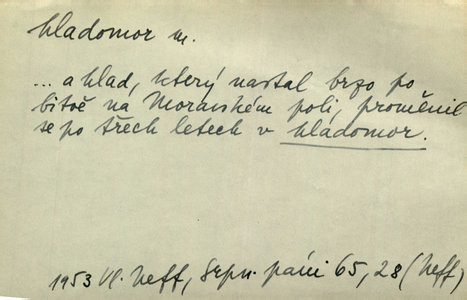 hladomor m.
... a hlad, který nastal brzo po
bitvě na Moravském poli, proměnil
se po třech letech v hladomor.
1953 Vl. Neff, Srpn. páni 65, 28 (Neff)